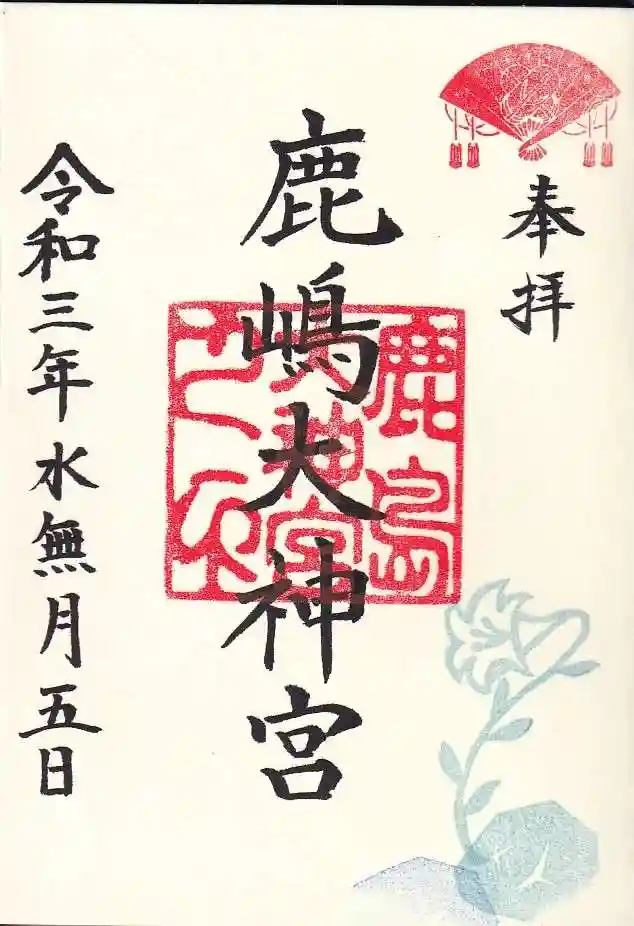 奉拝
鹿嶋大神宮
鹿島
大神宮
令和三年水無月五日